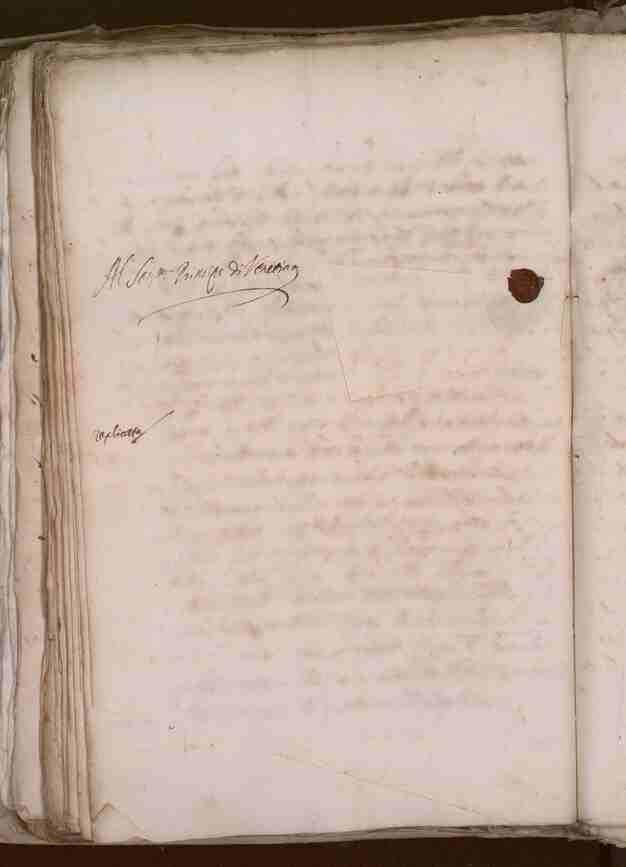 Al Ser.mo Principe di Venetia
replicata